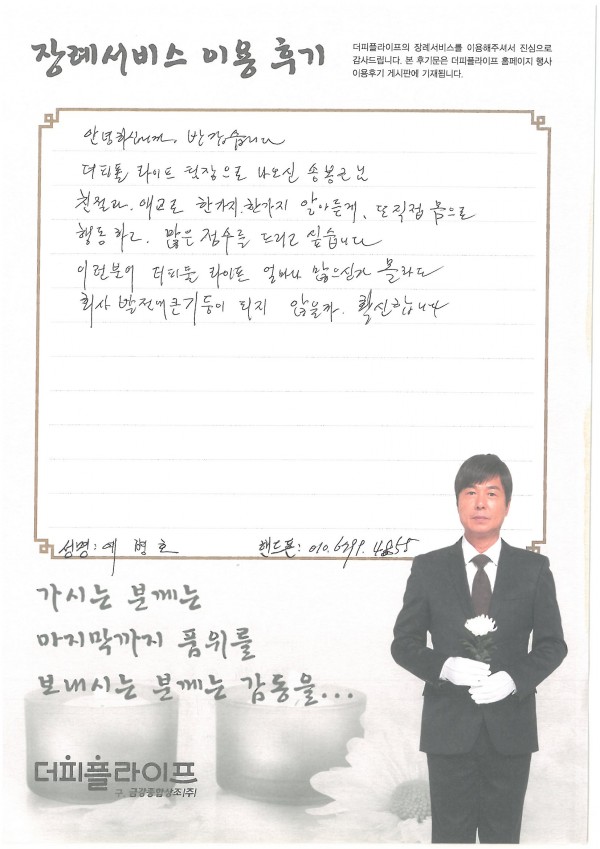 장례서비스 이용 후기
더피플라이프의 장례서비스를 이용해주셔서 진심으로
감사드립니다. 본 후기문은 더피플라이프 홈페이지 행사
이용후기 게시판에 기재됩니다.
안녕하십니까. 반갑습니다
더피플 라이프 팀장으로 나오신 송봉근님
친절과. 애교로 한가지.한가지 알아듣게, 또 직접 몸으로
행동하고. 많은 점수를 드리고 싶습니다
이런분이 더피플 라이프 얼마나 많으신가 몰라도
회사 발전에 큰기둥이 되지 않을까. 확신합니다
성명: 예병호 핸드폰: 010.6299.4855
가시는 분께는
마지막까지 품위를
보내시는 분께는 감동을...
더피플라이프
구. 금강종합상조(주)